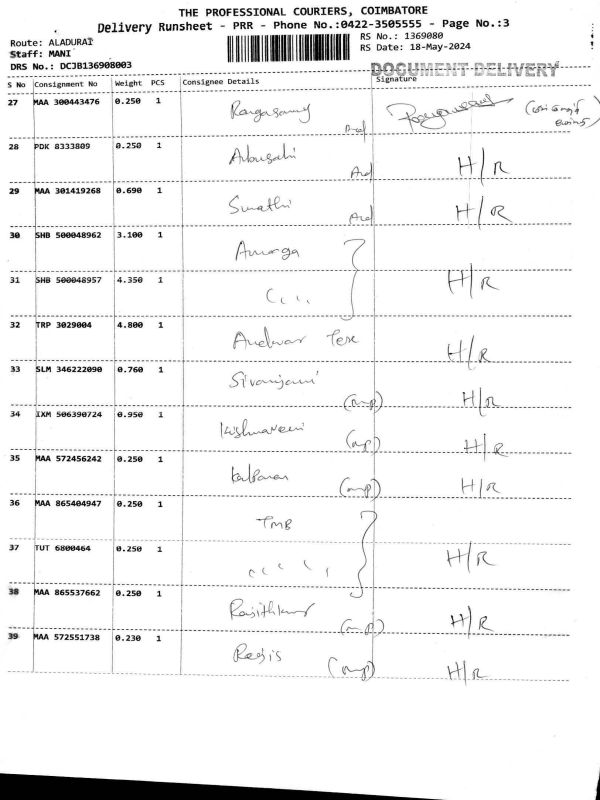 THE PROFESSIONAL COURIERS, COIMBATORE
Delivery Runsheet - PRR - Phone No.:0422-3505555 - Page No.:3
Route: ALADURAI
Staff: MANI
DRS No.: DCJB136908003
RS No.: 1369080
RS Date: 18-May-2024
DOCUMENT DELIVERY
S No Consignment No Weight PCS Consignee Details Signature
27 MAA 300443476 0.250 1 Rangasamy
28 PDK 8333809 0.250 1 H/R
29 MAA 301419268 0.690 1 Swathi H/R
30 SHB 500048962 3.100 1
31 SHB 500048957 4.350 1 H/R
32 TRP 3029004 4.800 1 H/R
33 SLM 346222090 0.760 1 Sivanjani (mp) H/R
34 IXM 506390724 0.950 1 Krishnaveni (mp) H/R
35 MAA 572456242 0.250 1 (mp) H/R
36 MAA 865404947 0.250 1 TMB
37 TUT 6800464 0.250 1 H/R
38 MAA 865537662 0.250 1 (mp) H/R
39 MAA 572551738 0.230 1 Regis (mp) H/R